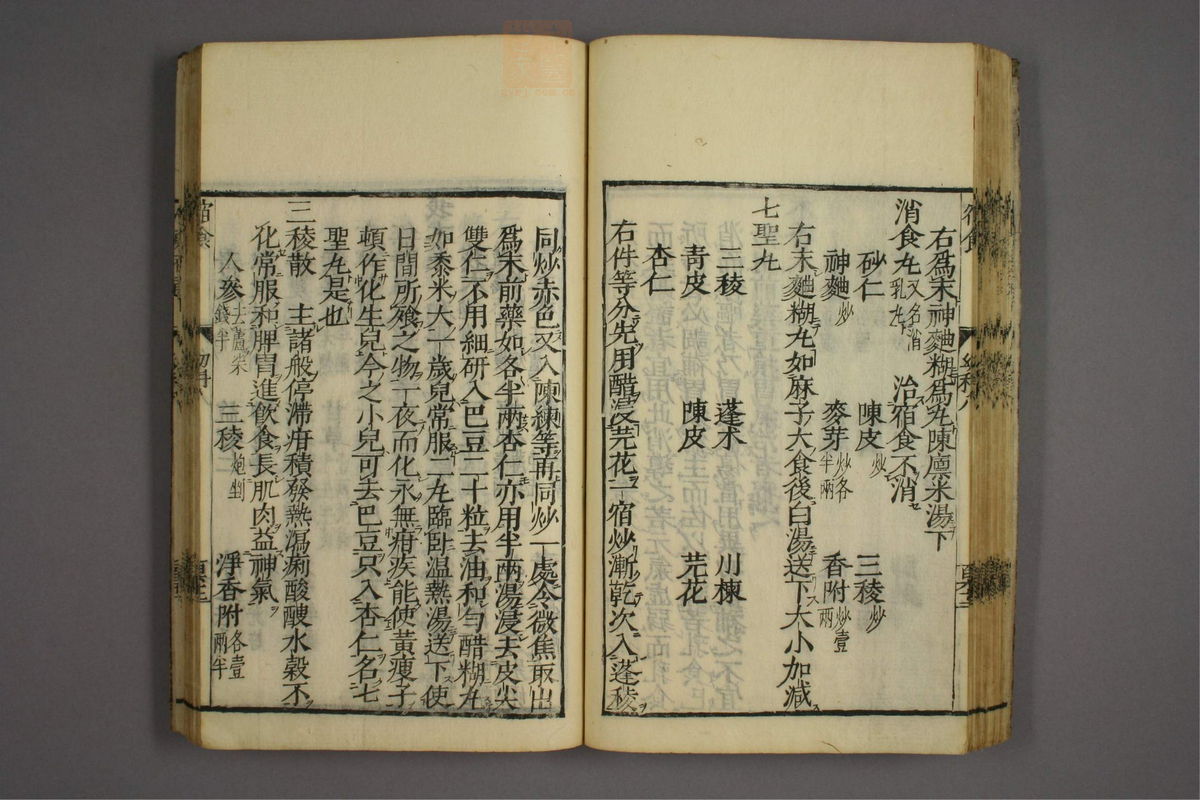 右爲末神麯糊爲丸陳廩米湯下
消食丸又名消乳丸 治宿食不消
砂仁 陳皮炒 三稜炒
神麯炒 麥芽炒各半兩 香附炒壹兩
右末麯糊丸如麻子大食後白湯送下大小加減
七聖丸
三稜 蓬朮 川楝
青皮 陳皮 芫花
杏仁
右件等分先用醋浸芫花一宿炒漸乾次入蓬稜
同炒赤色又入陳練等再同炒一處令微焦取出
爲末前藥如各半兩杏仁亦用半兩湯浸去皮尖
雙仁不用細研入巴豆二十粒去油和勻醋糊丸
如黍米大一歲兒常服二丸臨臥温熱湯送下使
日間所飡之物一夜而化永無疳疾能使黃瘦子
頓作化生兒今之小兒可去巴豆只入杏仁名七
聖丸是也
三稜散 主諸般停滯疳積發熱瀉痢酸䤃水穀不
化常服和脾胃進飲食長肌肉益神氣
人參去蘆柒錢半 三稜炮剉 淨香附各壹兩半
宿食